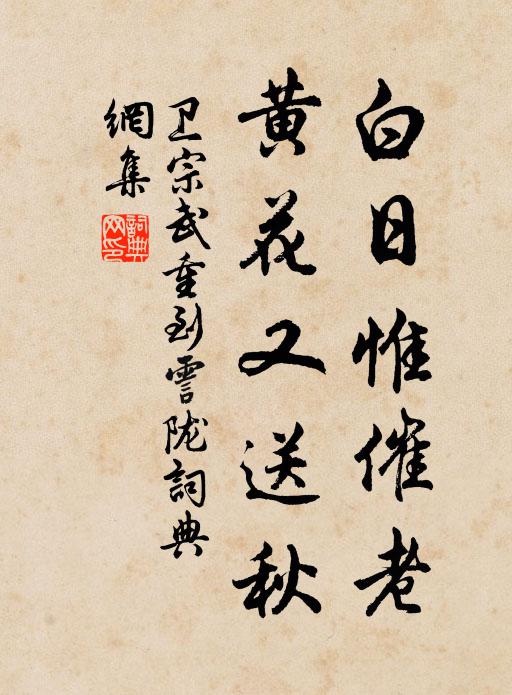 白日惟催老
黄花又送秋
卫宗武重到霅陇詞典
網集
詞典
网印